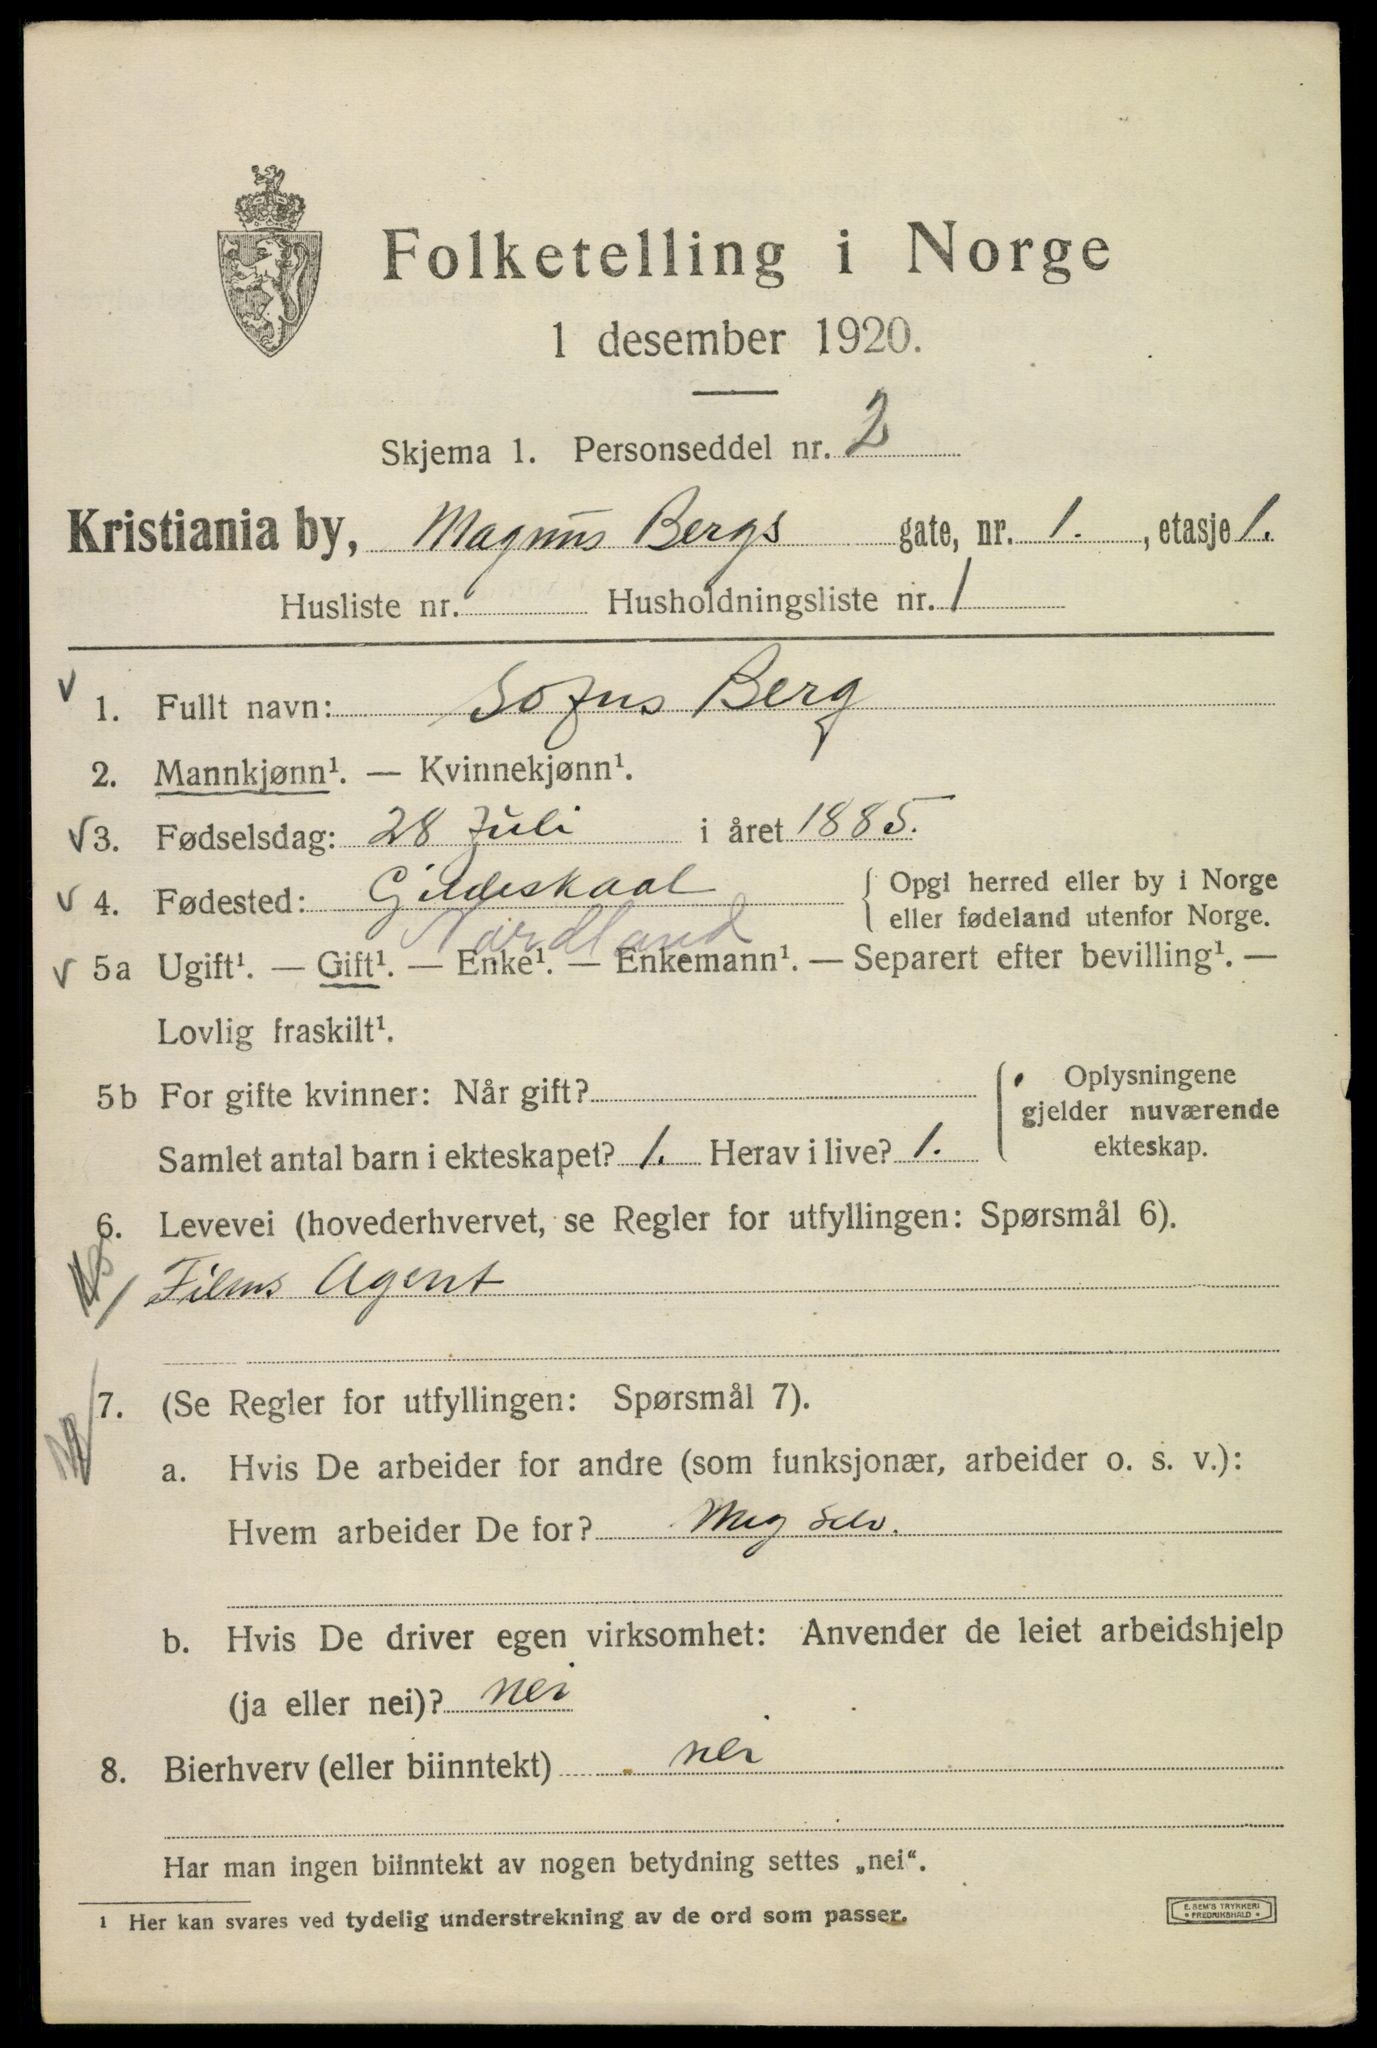 Folketelling i Norge
1 desember 1920.
Skjema 1. Personseddel nr. 2
Kristiania by, Magnus Bergs gate, nr. 1. , etasje 1.
Husliste nr. Husholdningsliste nr. 1
1. Fullt navn: Sofus Berg
2. Mannkjønn¹. — Kvinnekjønn¹.
3. Fødselsdag: 28 Juli i året 1885.
4. Fødested: Gildeskaal { Opgi herred eller by i Norge
eller fødeland utenfor Norge.
Nordland
5a Ugift¹. — Gift¹. — Enke¹. — Enkemann¹. — Separert efter bevilling¹. —
Lovlig fraskilt¹.
5b For gifte kvinner: Når gift? Oplysningene
gjelder nuværende
Samlet antal barn i ekteskapet? 1. Herav i live? 1. ekteskap.
6. Levevei (hovederhvervet, se Regler for utfyllingen: Spørsmål 6).
Films Agent
7. (Se Regler for utfyllingen: Spørsmål 7).
a. Hvis De arbeider for andre (som funksjonær, arbeider o. s. v.):
Hvem arbeider De for? Mig Selv.
b. Hvis De driver egen virksomhet: Anvender de leiet arbeidshjelp
(ja eller nei)? nei
8. Bierhverv (eller biinntekt) nei
Har man ingen biinntekt av nogen betydning settes „nei“.
1 Her kan svares ved tydelig understrekning av de ord som passer.
E. SEM'S TRYKKERI
• FREDRIKSHALD •